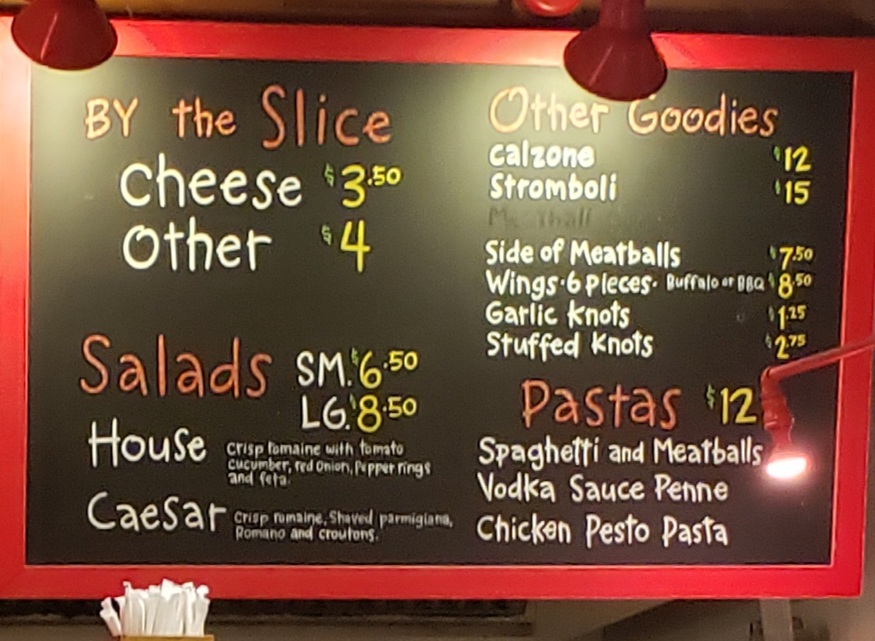 BY the Slice
Cheese $3.50
Other $4
Salads SM. $6.50
LG. $8.50
House crisp romaine with tomato
cucumber, red onion, pepper rings
and feta.
Caesar Crisp romaine, Shaved parmigiana,
Romano and croutons.
Other Goodies
calzone $12
Stromboli $15
Meatball
Side of Meatballs $7.50
Wings·6 pieces· Buffalo or BBQ $8.50
Garlic Knots $1.25
Stuffed Knots $2.75
Pastas $12
Spaghetti and Meatballs
Vodka Sauce Penne
Chicken Pesto Pasta